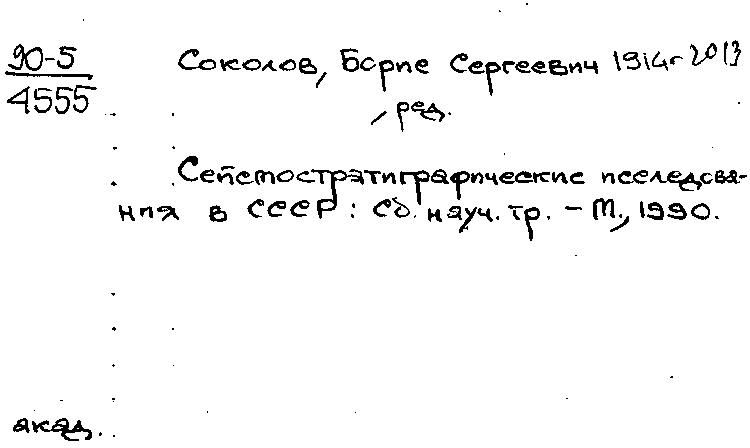 90-5
4555
Соколов, Борис Сергеевич 1914-2013
, ред.
Сейсмостратиграфические исследова-
ния в СССР: Сб. науч. тр. - М., 1990.
акад.